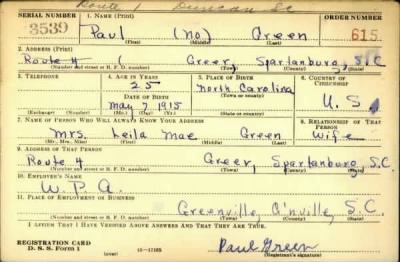 Route 1 Duncan SC
SERIAL NUMBER 1. NAME (Print) ORDER NUMBER
3539 Paul (no) Green 615
(First) (Middle) (Last)
2. ADDRESS (Print)
Route 4 ( Greer, Spartanburg, S.C
(Number and street or R. F. D. number) (Town) (County) (State)
3. TELEPHONE 4. AGE IN YEARS 5. PLACE OF BIRTH 6. COUNTRY OF CITIZENSHIP
25 North Carolina
DATE OF BIRTH (Town or county)
May 7 1915 U. S.
(Exchange) (Number) (Mo.) (Day) (Yr.) (State or country)
7. NAME OF PERSON WHO WILL ALWAYS KNOW YOUR ADDRESS 8. RELATIONSHIP OF THAT PERSON
Mrs. Leila Mae Green Wife
(Mr., Mrs., Miss) (First) (Middle) (Last)
9. ADDRESS OF THAT PERSON
Route 4 Greer, Spartanburg S.C.
(Number and street or R. F. D. number) (Town) (County) (State)
10. EMPLOYER'S NAME
W. P. A.
11. PLACE OF EMPLOYMENT OR BUSINESS
Greenville, G'nville, S.C.
(Number and street or R. F. D. number) (Town) (County) (State)
I AFFIRM THAT I HAVE VERIFIED ABOVE ANSWERS AND THAT THEY ARE TRUE.
REGISTRATION CARD
D. S. S. Form 1 (over) Paul Green
(Registrant's signature)